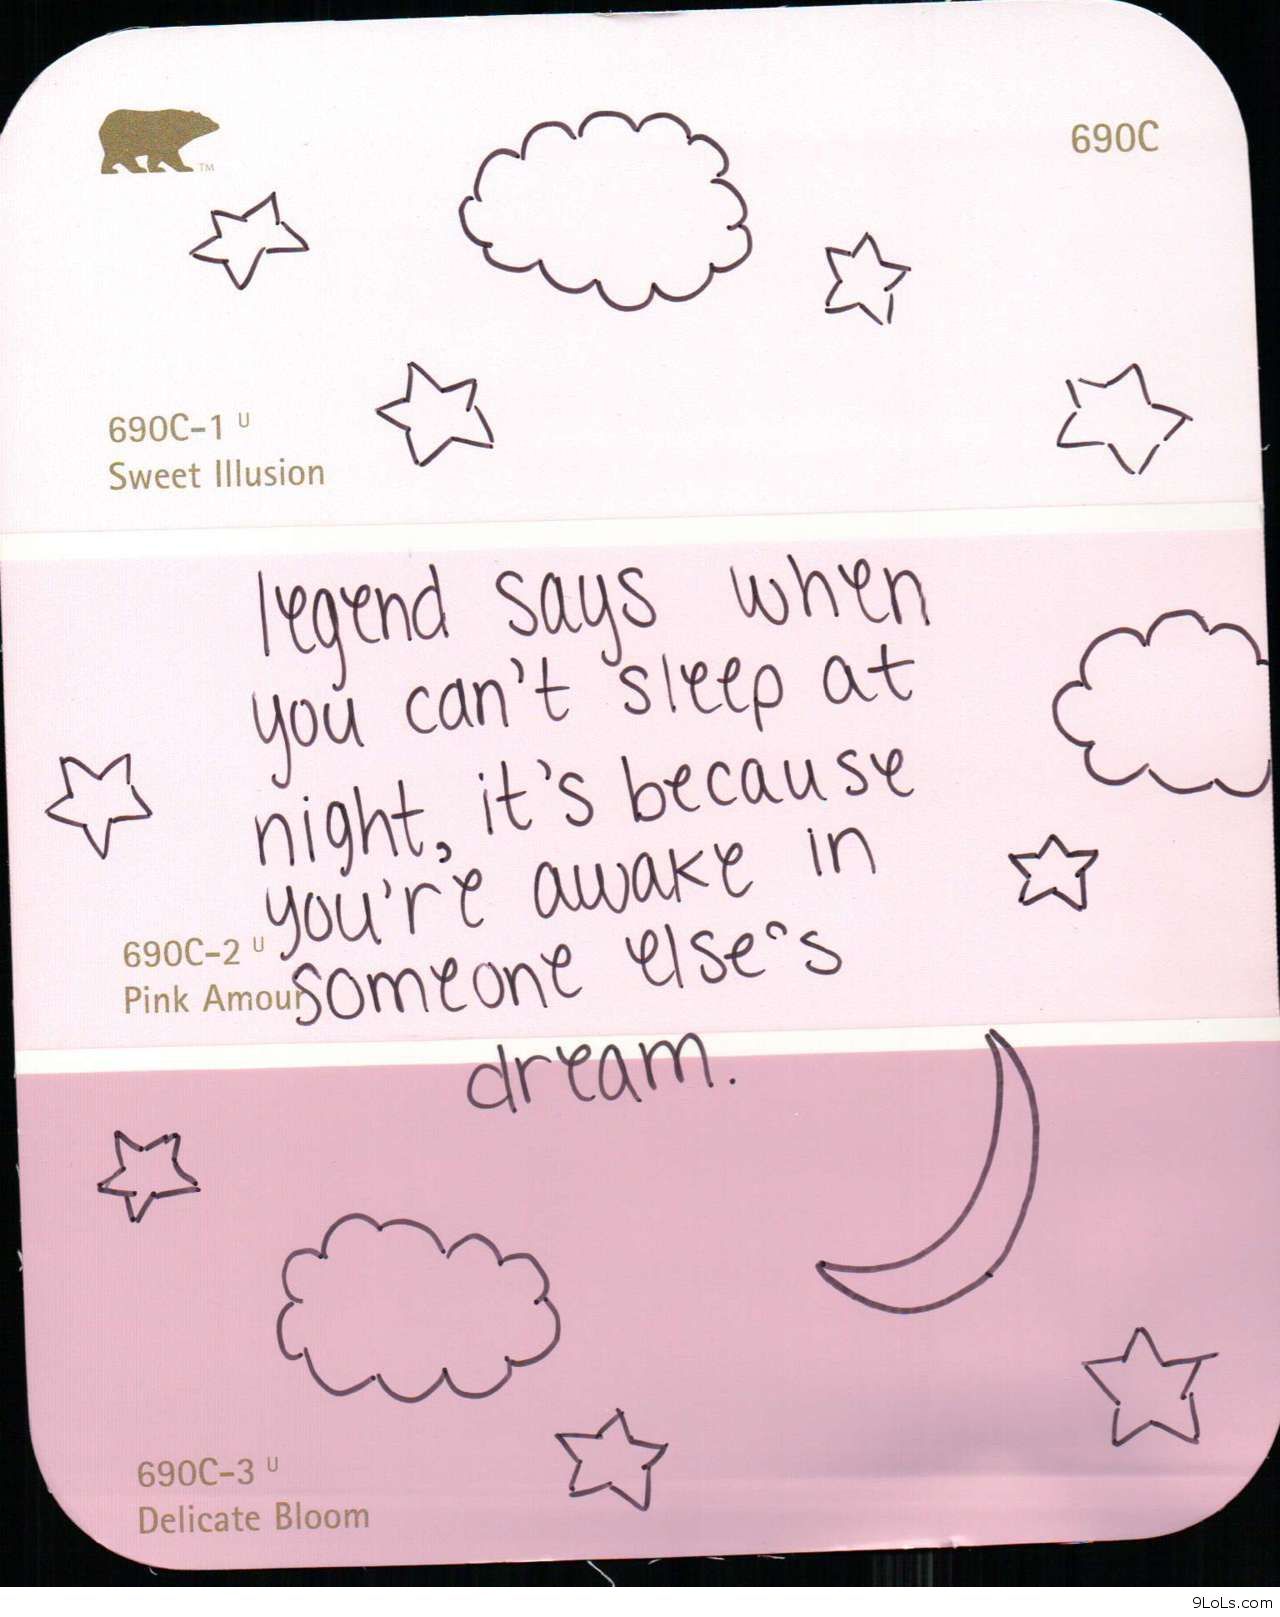 TM
690C
690C-1 U
Sweet Illusion
legend says when
you can't sleep at
night, it's because
you're awake in
someone else's
dream.
690C-2 U
Pink Amour
690C-3 U
Delicate Bloom
9LoLs.com